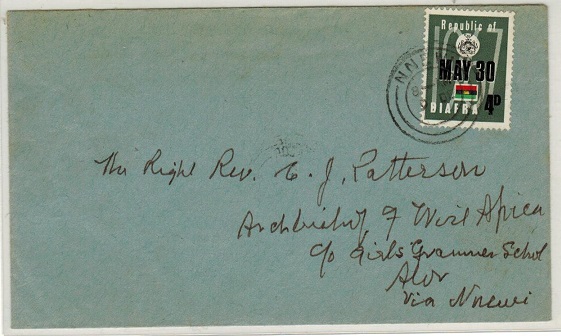 Republic of
1967
MAY 30
4D
BIAFRA
NNEWI
The Right Rev. C. J. Patterson
Archbishop of West Africa
c/o Girls' Grammar School
Awo
Via Nnewi